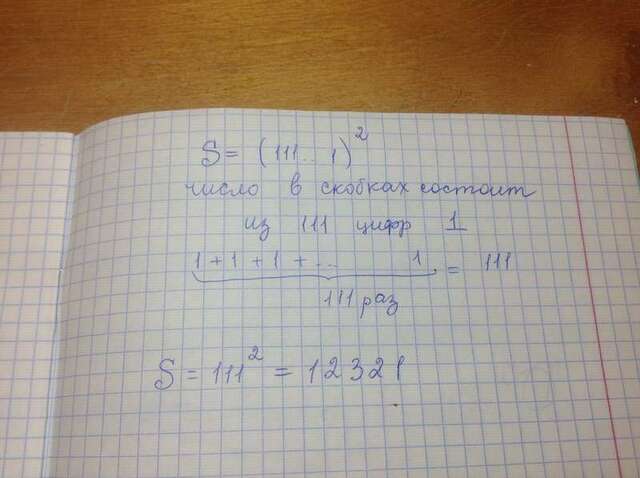 S = (111...1)²
число в скобках состоит
из 111 цифр 1
1 + 1 + 1 + ... 1 = 111
111 раз
S = 111² = 12321